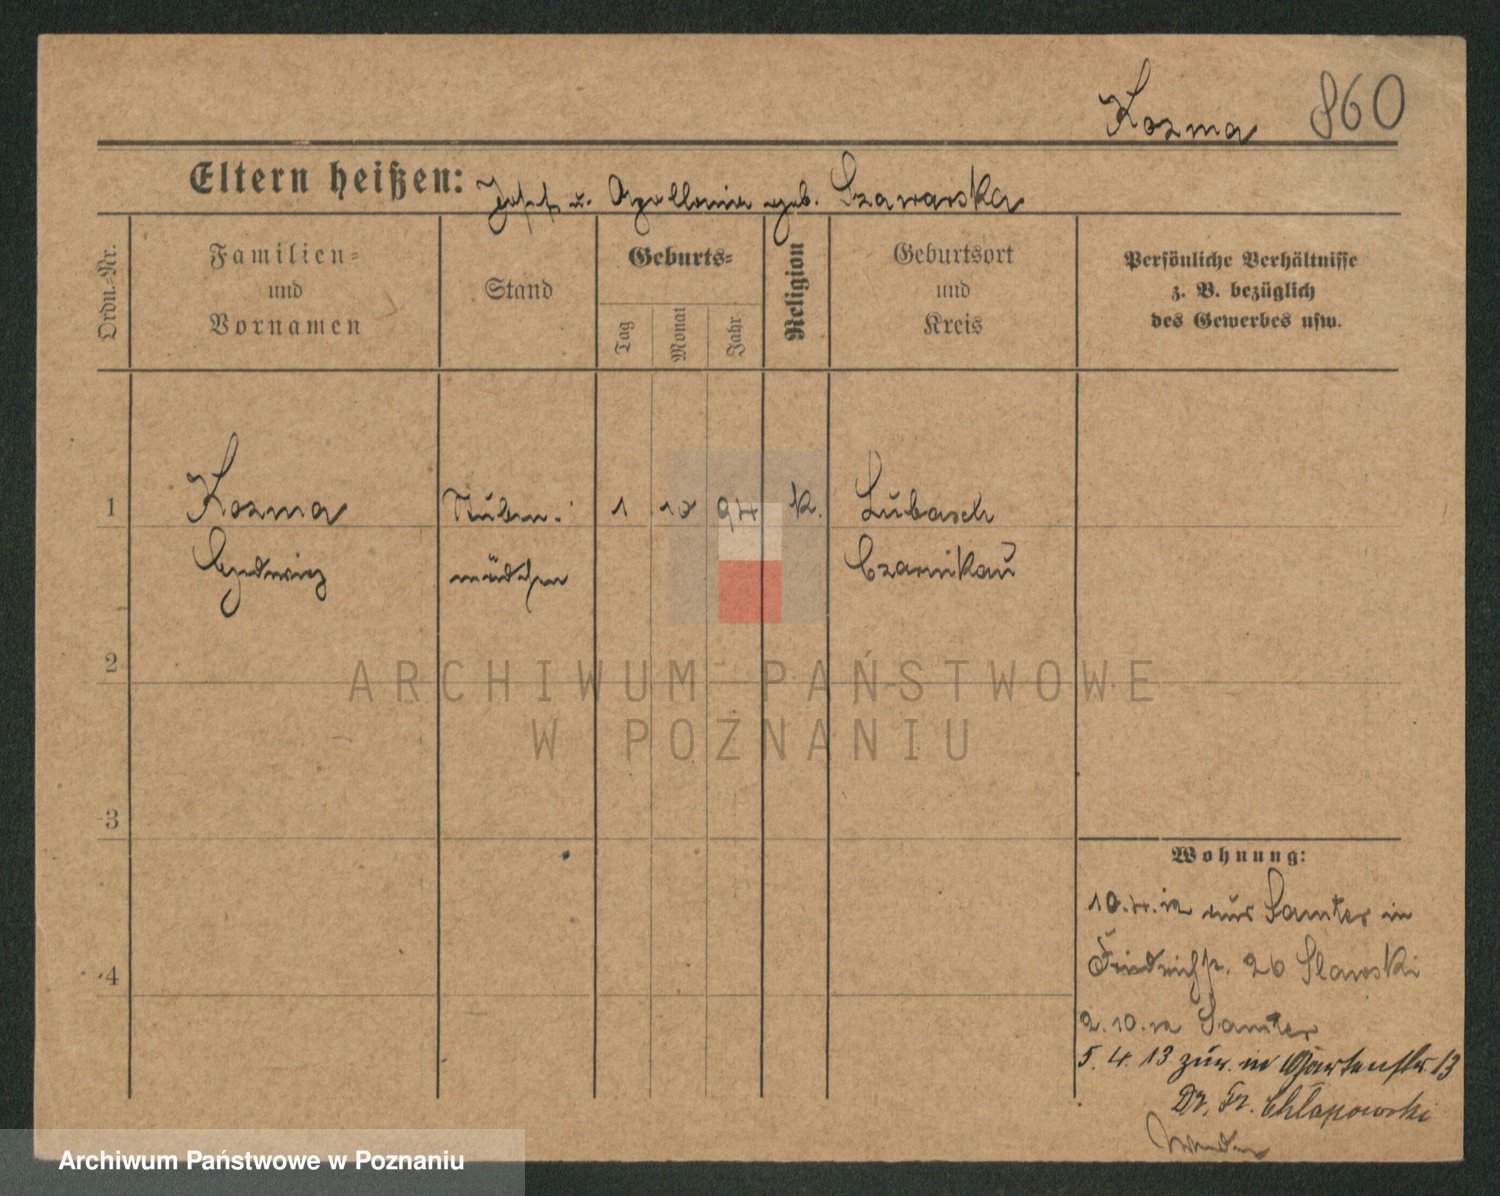 Kozma 860
Eltern heißen: Josef u. Apollonia geb. Czarwska
Ordn.-Nr.
Familien-
und
Vornamen
Stand
Geburts-
Tag
Monat
Jahr
Religion
Geburtsort
und
Kreis
Persönliche Verhältnisse
z. B. bezüglich
des Gewerbes usw.
1 Kozma Stuben- 1 10 94 k. Lubasch
mädchen Czarnikau
2
3
4
Wohnung:
10.4.12 aus Samter in
Friedrichstr. 26 Slawski
2.10.12 Samter
5.4.13 zur. in Gartenstr. 13
Dr. Fr. Chlapowski
wenden
ARCHIWUM PAŃSTWOWE
W POZNANIU
Archiwum Państwowe w Poznaniu